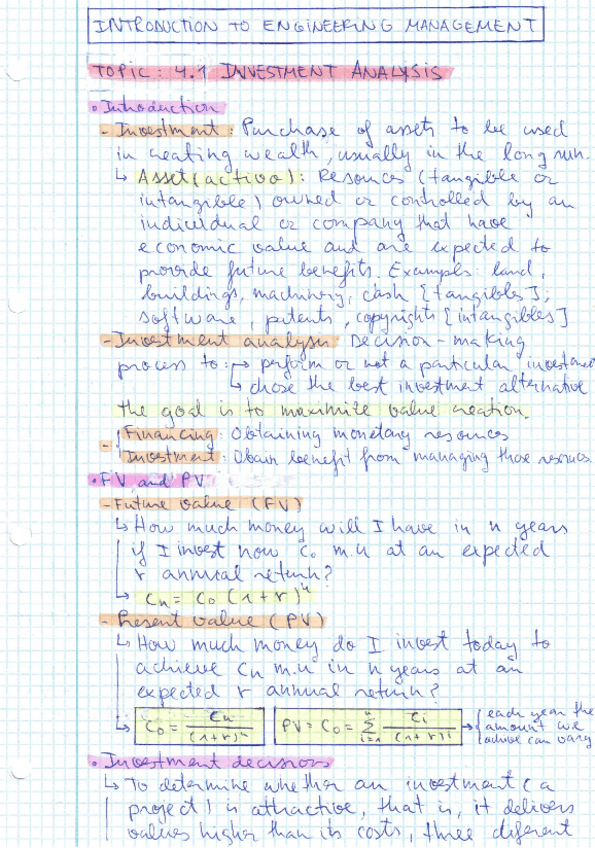 INTRODUCTION TO ENGINEERING MANAGEMENT
TOPIC: 4.1 INVESTMENT ANALYSIS
• Introduction
- Investment: Purchase of assets to be used
in creating wealth, usually in the long run.
↳ Asset (activo): Resources (tangible or
intangible) owned or controlled by an
individual or company that have
economic value and are expected to
provide future benefits. Example: land,
buildings, machinery, cash [tangibles];
software, patents, copyrights [intangibles]
- Investment analysis Decision-making
process to: ↱ perform or not a particular investment
↳ chose the best investment alternative
the goal is to maximize value creation.
- { Financing: Obtaining monetary resources
Investment: Obtain benefit from managing those resources.
• FV and PV
- Future value (FV)
↳ How much money will I have in n years
if I invest now C₀ m.u at an expected
r annual return?
↳ Cn = C₀ (1+r)^n
- Present value (PV)
↳ How much money do I invest today to
achieve Cn m.u in n years at an
expected r annual return?
↳ C₀ = Cn / (1+r)^n PV = C₀ = Σ_{i=1}^{n} Ci / (1+r)^i → { each year the
amount we
achive can vary
• Investment decisions
↳ To determine whether an investment (a
project) is attractive, that is, it delivers
values higher than its costs, three diferent